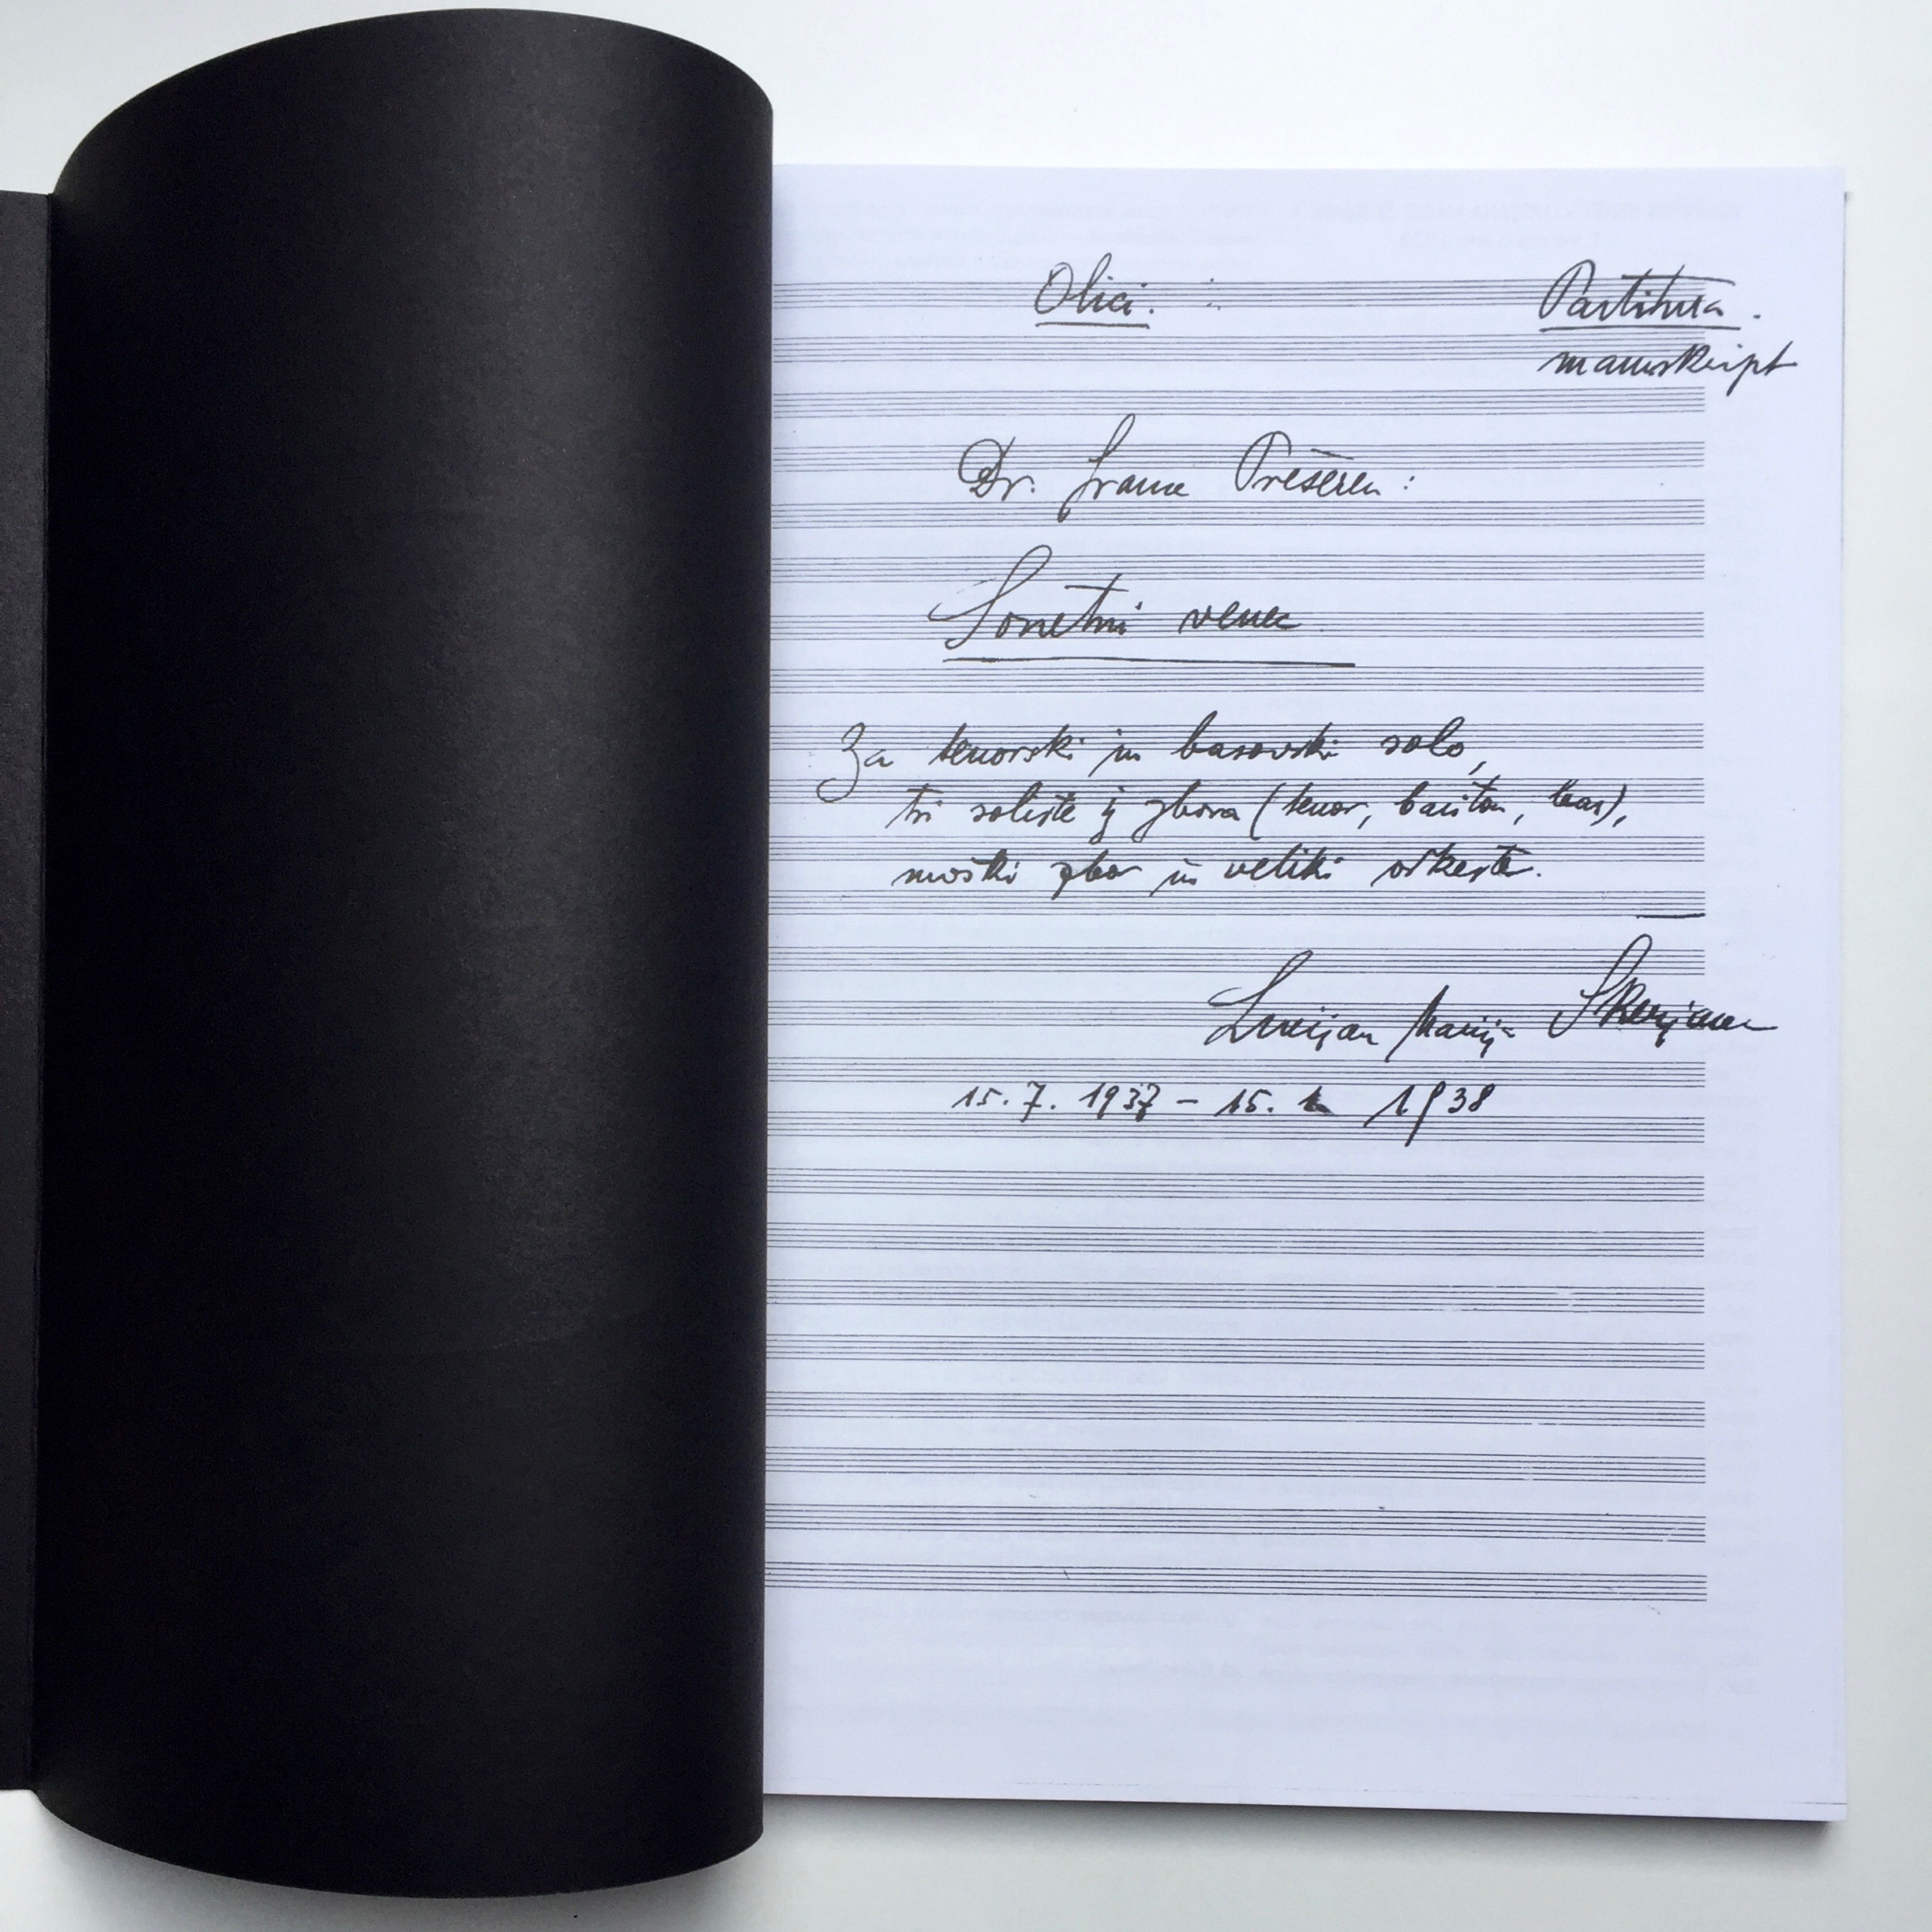 Olici.
Partitura.
manuskript
Dr. France Prešeren:
Sonetni venec
Za tenorski in basovski solo,
tri soliste iz zbora (tenor, bariton, bas),
moški zbor in veliki orkester.
Lucijan Marija Škerjanc
15. 7. 1937 - 15. 1938